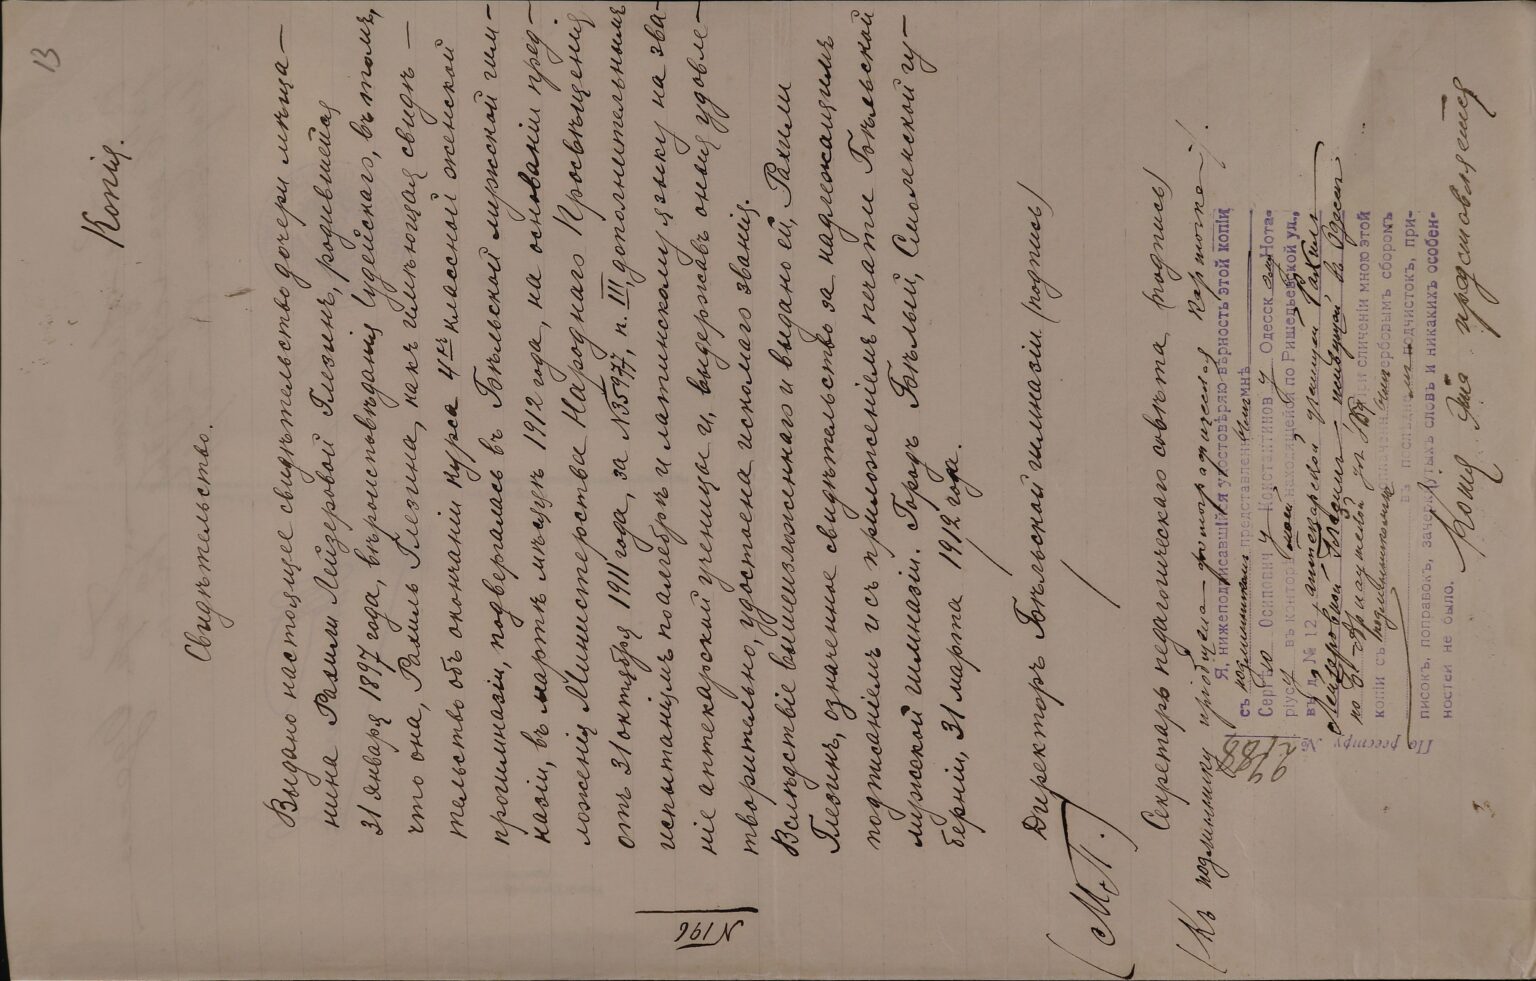 13
Копія.
Свидѣтельство.
Выдано настоящее свидѣтельство дочери мѣща-
нина Рахили Лейзеровой Глезинъ, родившейся
31 января 1897 года, вѣроисповѣданія іудейскаго, въ томъ,
что она, Рахиль Глезина, какъ имѣющая свидѣ-
тельство объ окончаніи курса 4хъ классной женской
прогимназіи, подвергалась въ Бѣльской мужской гим-
назіи, въ мартѣ мѣсяцѣ 1912 года, на основаніи пред-
ложенія Министерства Народнаго Просвѣщенія
отъ 31 октября 1911 года, за №35977, п. III, дополнительнымъ
испытаніямъ по алгебрѣ и латинскому языку на зва-
ніе аптекарской ученицы и, выдержавъ оныя удовле-
творительно, удостоена искомаго званія.
Вслѣдствіе вышеизложеннаго и выдано ей, Рахили
Глезинъ, означенное свидѣтельство за надлежащимъ
подписаніемъ и съ приложеніемъ печати Бѣльской
мужской гимназіи. Городъ Бѣлый, Смоленской гу-
берніи, 31 марта 1912 года.
№196
Директоръ Бѣльской гимназіи (подпись)
(М.П.)
Секретарь педагогическаго совѣта (подпись)
(Къ подлиннику приложена фотографическая карточка).
Я, нижеподписавшійся удостовѣряю вѣрность этой копіи
съ подлинникомъ представленнымъ мнѣ
Сергѣю Осиповичу Константинову Одесск Нота-
ріусу въ конторѣ моей находящейся по Ришельевской ул.,
въ д. № 12, аптекарской ученицей
Лейзеровной живущей въ Одессѣ
по при сличеніи мною этой
копіи съ подлинникомъ гербовымъ сборомъ
въ послѣднемъ подчистокъ, при-
писокъ, поправокъ, зачеркнутыхъ словъ и никакихъ особен-
ностей не было.
По реестру № 2788
Копія эта представляется